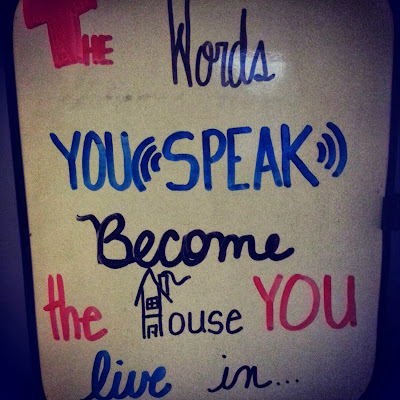 The Words
YOU SPEAK
Become
the House YOU
live in...